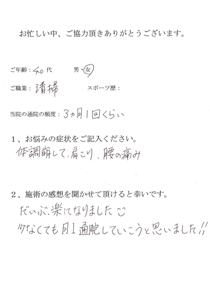 お忙しい中、ご協力頂きありがとうございます。
ご年齢：40代　男・女
ご職業：清掃　スポーツ歴：
当院の通院の頻度：3ヵ月1回くらい
1、お悩みの症状をご記入ください。
体調崩して、肩こり、腰の痛み
2、施術の感想を聞かせて頂けると幸いです。
だいぶ楽になりました
少なくても月1通院していこうと思いました!!